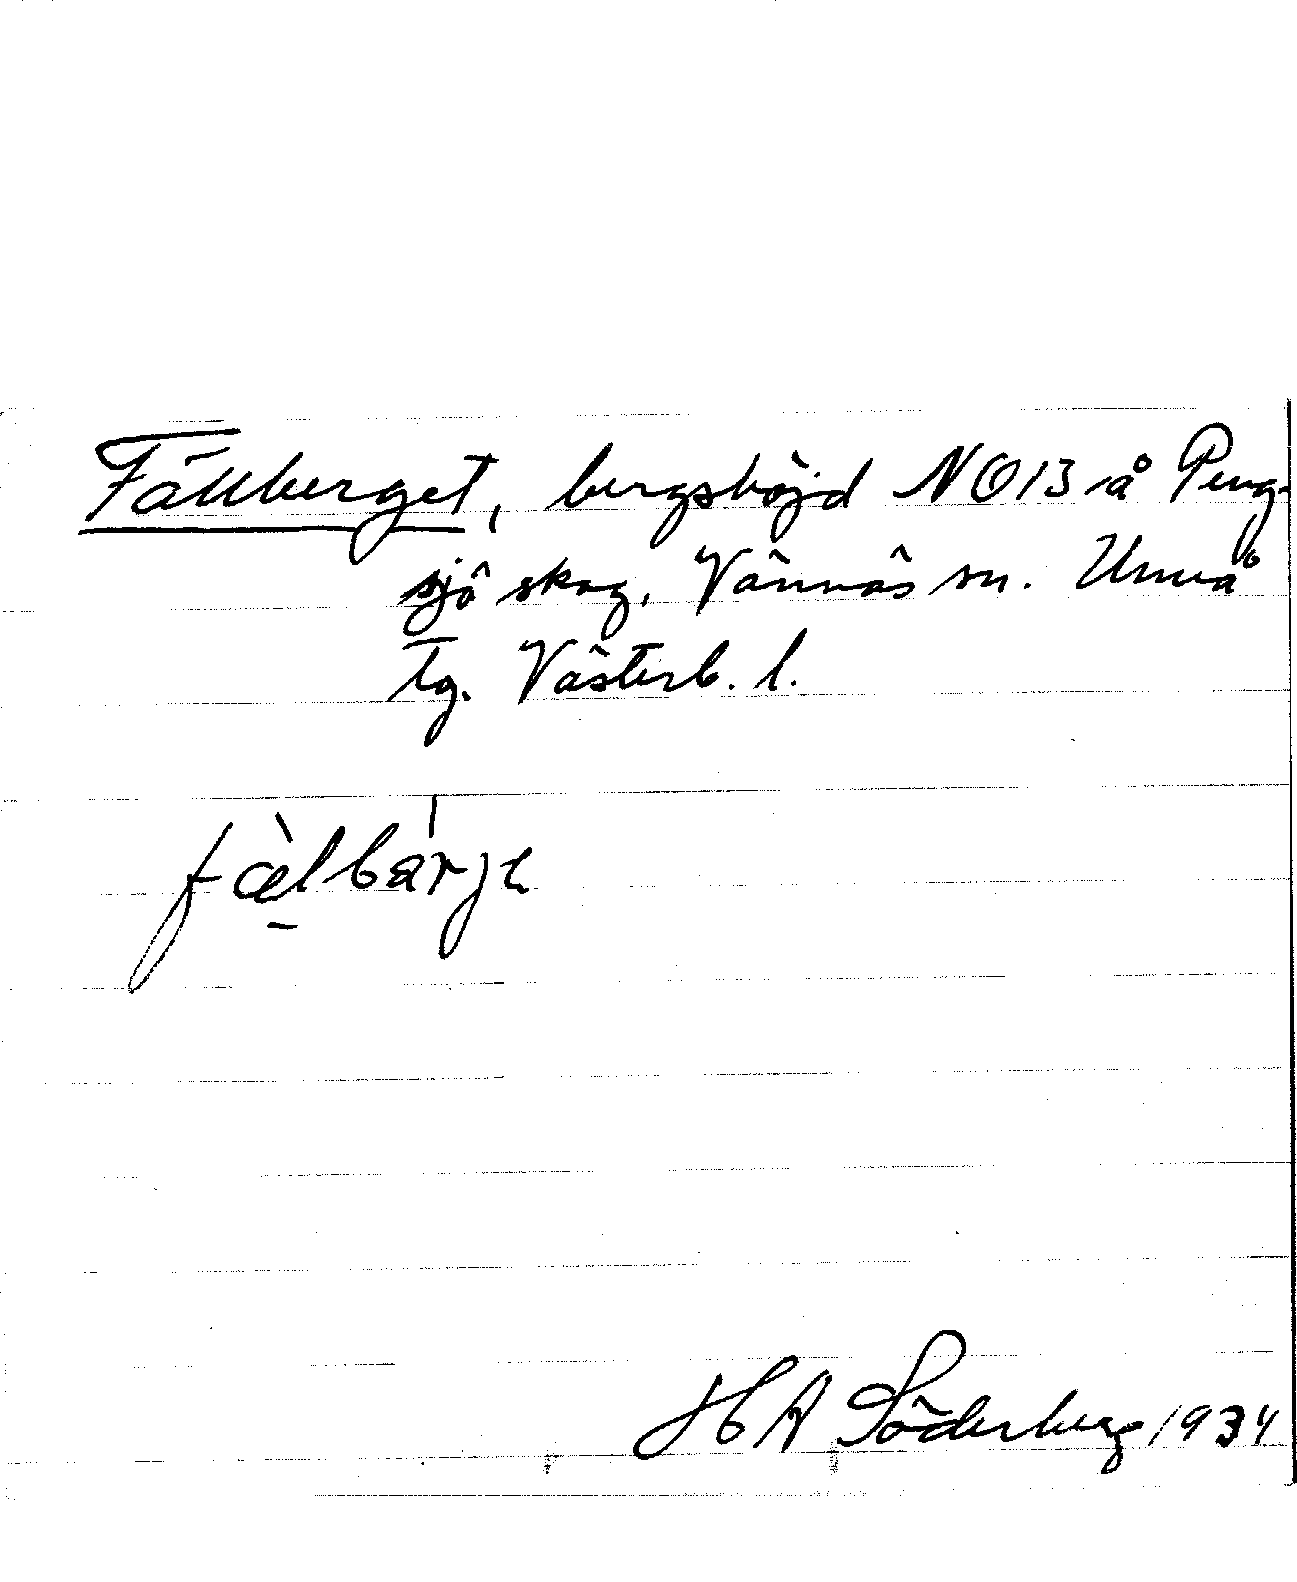 Fällberget, bergshöjd NO13 å Peng-
sjö skog, Vännäs sn. Umeå
tg. Västerb. l.
fæ̀lbarje
H A Söderberg 1934